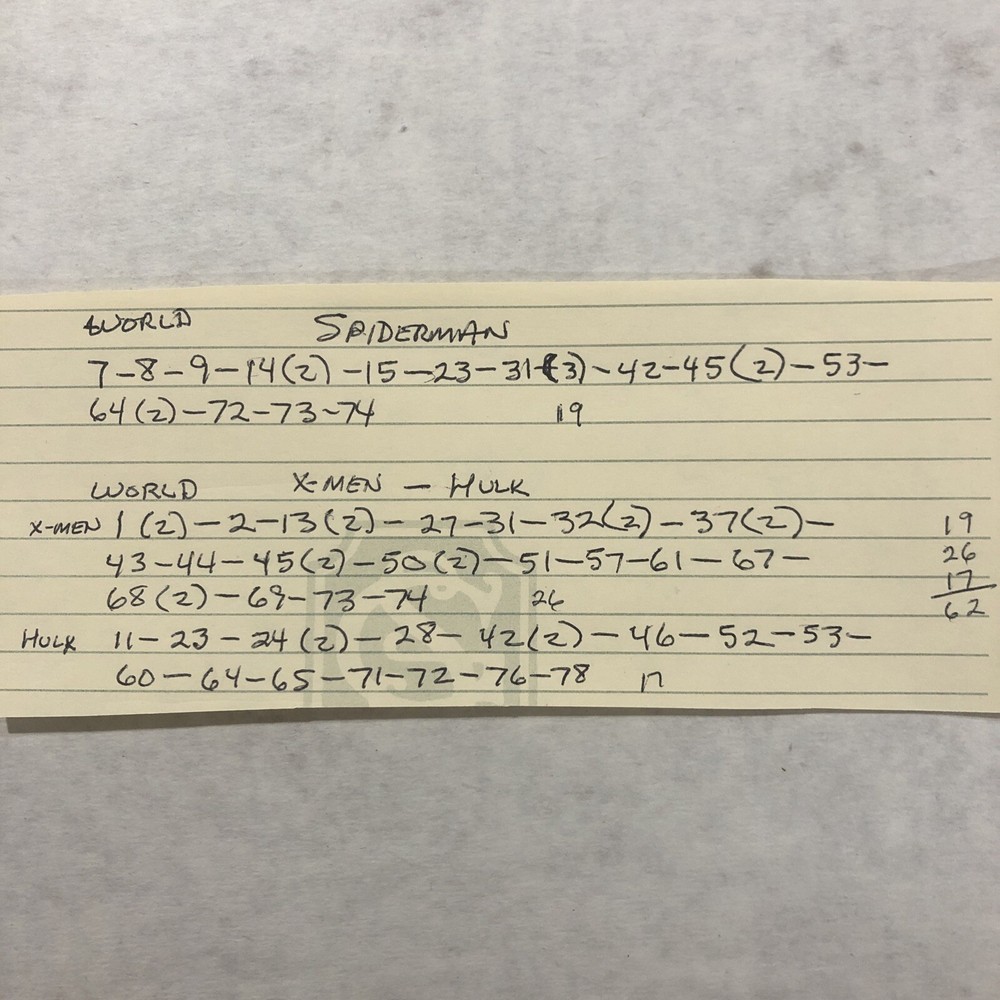 WORLD SPIDERMAN
7-8-9-14(2)-15-23-31-(3)-42-45(2)-53-
64(2)-72-73-74 19
WORLD X-MEN - HULK
X-MEN 1(2)-2-13(2)-27-31-32(2)-37(2)- 19
43-44-45(2)-50(2)-51-57-61-67- 26
17
68(2)-69-73-74 26 62
HULK 11-23-24(2)-28-42(2)-46-52-53-
60-64-65-71-72-76-78 17